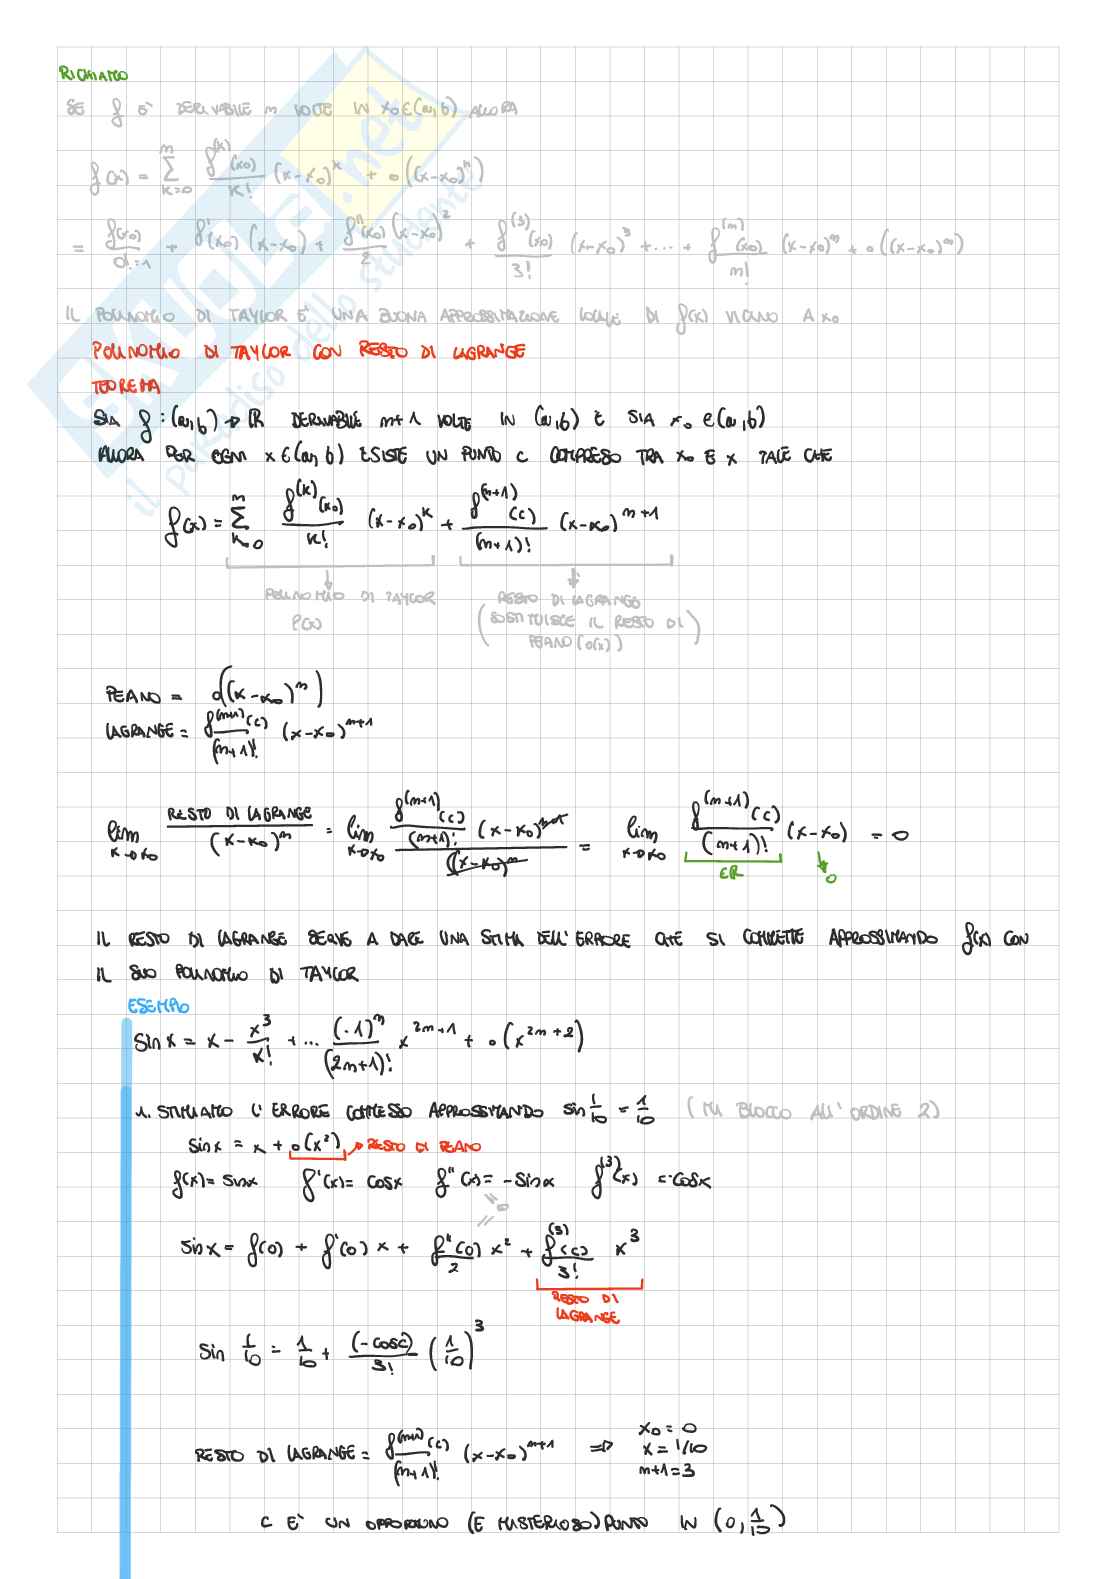 RICHIAMO
SE f E' DERIVABILE n VOLTE IN x₀ ∈ (a,b) ALLORA
f(x) = Σ_{k=0}^{n} f^{(k)}(x₀)/k! (x-x₀)^k + o((x-x₀)^n)
= f(x₀)/0!=1 + f'(x₀)(x-x₀) + f''(x₀)(x-x₀)²/2 + f^{(3)}(x₀)/3! (x-x₀)³ + ... + f^{(n)}(x₀)/n! (x-x₀)^n + o((x-x₀)^n)
IL POLINOMIO DI TAYLOR E' UNA BUONA APPROSSIMAZIONE LOCALE DI f(x) VICINO A x₀
POLINOMIO DI TAYLOR CON RESTO DI LAGRANGE
TEOREMA
SIA f: (a,b) → ℝ DERIVABILE n+1 VOLTE IN (a,b) E SIA x₀ ∈ (a,b)
ALLORA PER OGNI x ∈ (a,b) ESISTE UN PUNTO C COMPRESO TRA x₀ E x TALE CHE
f(x) = Σ_{k=0}^{n} f^{(k)}(x₀)/k! (x-x₀)^k + f^{(n+1)}(c)/(n+1)! (x-x₀)^{n+1}
POLINOMIO DI TAYLOR
P(x)
RESTO DI LAGRANGE
(SOSTITUISCE IL RESTO DI
PEANO (o(x)))
PEANO = o((x-x₀)^n)
LAGRANGE = f^{(n+1)}(c)/(n+1)! (x-x₀)^{n+1}
lim_{x→x₀} RESTO DI LAGRANGE/(x-x₀)^n = lim_{x→x₀} f^{(n+1)}(c)/(n+1)! (x-x₀)^{n+1}/((x-x₀)^n = lim_{x→x₀} f^{(n+1)}(c)/(n+1)! (x-x₀) = 0
∈ℝ
0
IL RESTO DI LAGRANGE SERVE A DARE UNA STIMA DELL'ERRORE CHE SI COMMETTE APPROSSIMANDO f(x) CON
IL SUO POLINOMIO DI TAYLOR
ESEMPIO
sin x = x - x³/k! + ... (-1)^n/(2n+1)! x^{2n+1} + o(x^{2n+2})
1. STIMIAMO L'ERRORE COMMESSO APPROSSIMANDO sin 1/10 = 1/10 (MI BLOCCO ALL'ORDINE 2)
sin x = x + o(x²) → RESTO DI PEANO
f(x) = sinx f'(x) = cosx f''(x) = -sinx f^{(3)}(x) = -cosx
0
sin x = f(0) + f'(0) x + f''(0)/2 x² + f^{(3)}(c)/3! x³
RESTO DI
LAGRANGE
sin 1/10 = 1/10 + (-cosc)/3! (1/10)³
RESTO DI LAGRANGE = f^{(n+1)}(c)/(n+1)! (x-x₀)^{n+1} ⇒ x₀ = 0
x = 1/10
n+1 = 3
C E' UN OPPORTUNO (E MISTERIOSO) PUNTO IN (0, 1/10)
SKUOLA.net
il paradiso dello studente